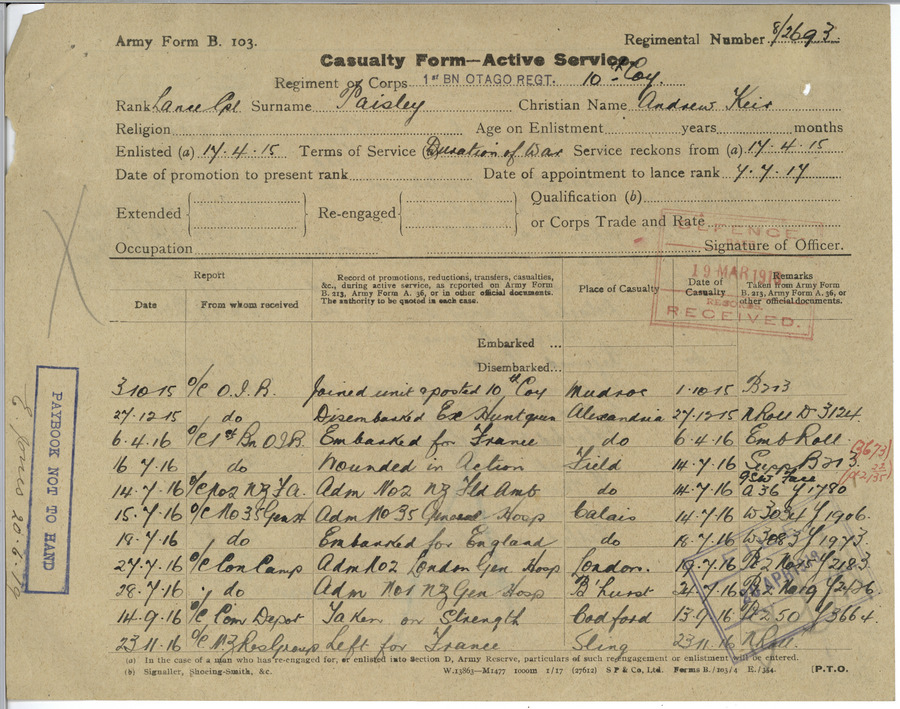 Army Form B. 103. Regimental Number 8/2693
Casualty Form—Active Service.
Regiment or Corps 1st BN OTAGO REGT. 10th Coy.
Rank Lance Cpl Surname Paisley Christian Name Andrew Keir
Religion Age on Enlistment years months
Enlisted (a) 17.4.15 Terms of Service (Duration of War Service reckons from (a) 17.4.15
Date of promotion to present rank Date of appointment to lance rank 7.7.17
Extended Re-engaged Qualification (b)
or Corps Trade and Rate
Occupation Signature of Officer.
DEFENCE
19 MAR 191
RECEIVED.
Report
Date From whom received
Record of promotions, reductions, transfers, casualties,
&c., during active service, as reported on Army Form
B. 213, Army Form A. 36, or in other official documents.
The authority to be quoted in each case.
Place of Casualty
Date of
Casualty
Remarks
Taken from Army Form
B. 213, Army Form A. 36, or
other official documents.
Embarked ...
Disembarked...
3.10.15 O/C O.I.B. Joined unit & posted 10th Coy Mudros 1.10.15 B213
27.12.15 do Disembarked Ex Huntsgreen Alexandria 27.12.15 N Roll D 3124
6.4.16 O/C 1st Bn O.I.B. Embarked for France do 6.4.16 Emb Roll
16.7.16 do Wounded in Action Field 14.7.16 Supp B213
GSW Face
14.7.16 O/C No2 NZ F.A. Adm No2 NZ Fld Amb do 14.7.16 A36 Y1780
15.7.16 O/C No 35 Gen H Adm No 35 General Hosp Calais 14.7.16 W3034 Y1906
18.7.16 do Embarked for England do 18.7.16 W3083 Y1973
27.7.16 O/C Con Camp Adm No2 London Gen Hosp London 19.7.16 Y2183
28.7.16 do Adm No1 NZ Gen Hosp B'hurst 24.7.16
14.9.16 O/C Com Depot Taken on Strength Codford 13.9.16 Y3664
23.11.16 O/C NZ Res Group Left for France Sling 23.11.16 N Roll
PAYBOOK NOT TO HAND
20.6.19
(a) In the case of a man who has re-engaged for, or enlisted into Section D, Army Reserve, particulars of such re-engagement or enlistment will be entered.
(b) Signaller, Shoeing-Smith, &c. W.13863—M1477 1000m 1/17 (27612) S P & Co, Ltd. Forms B./103/4 E./354. [P.T.O.